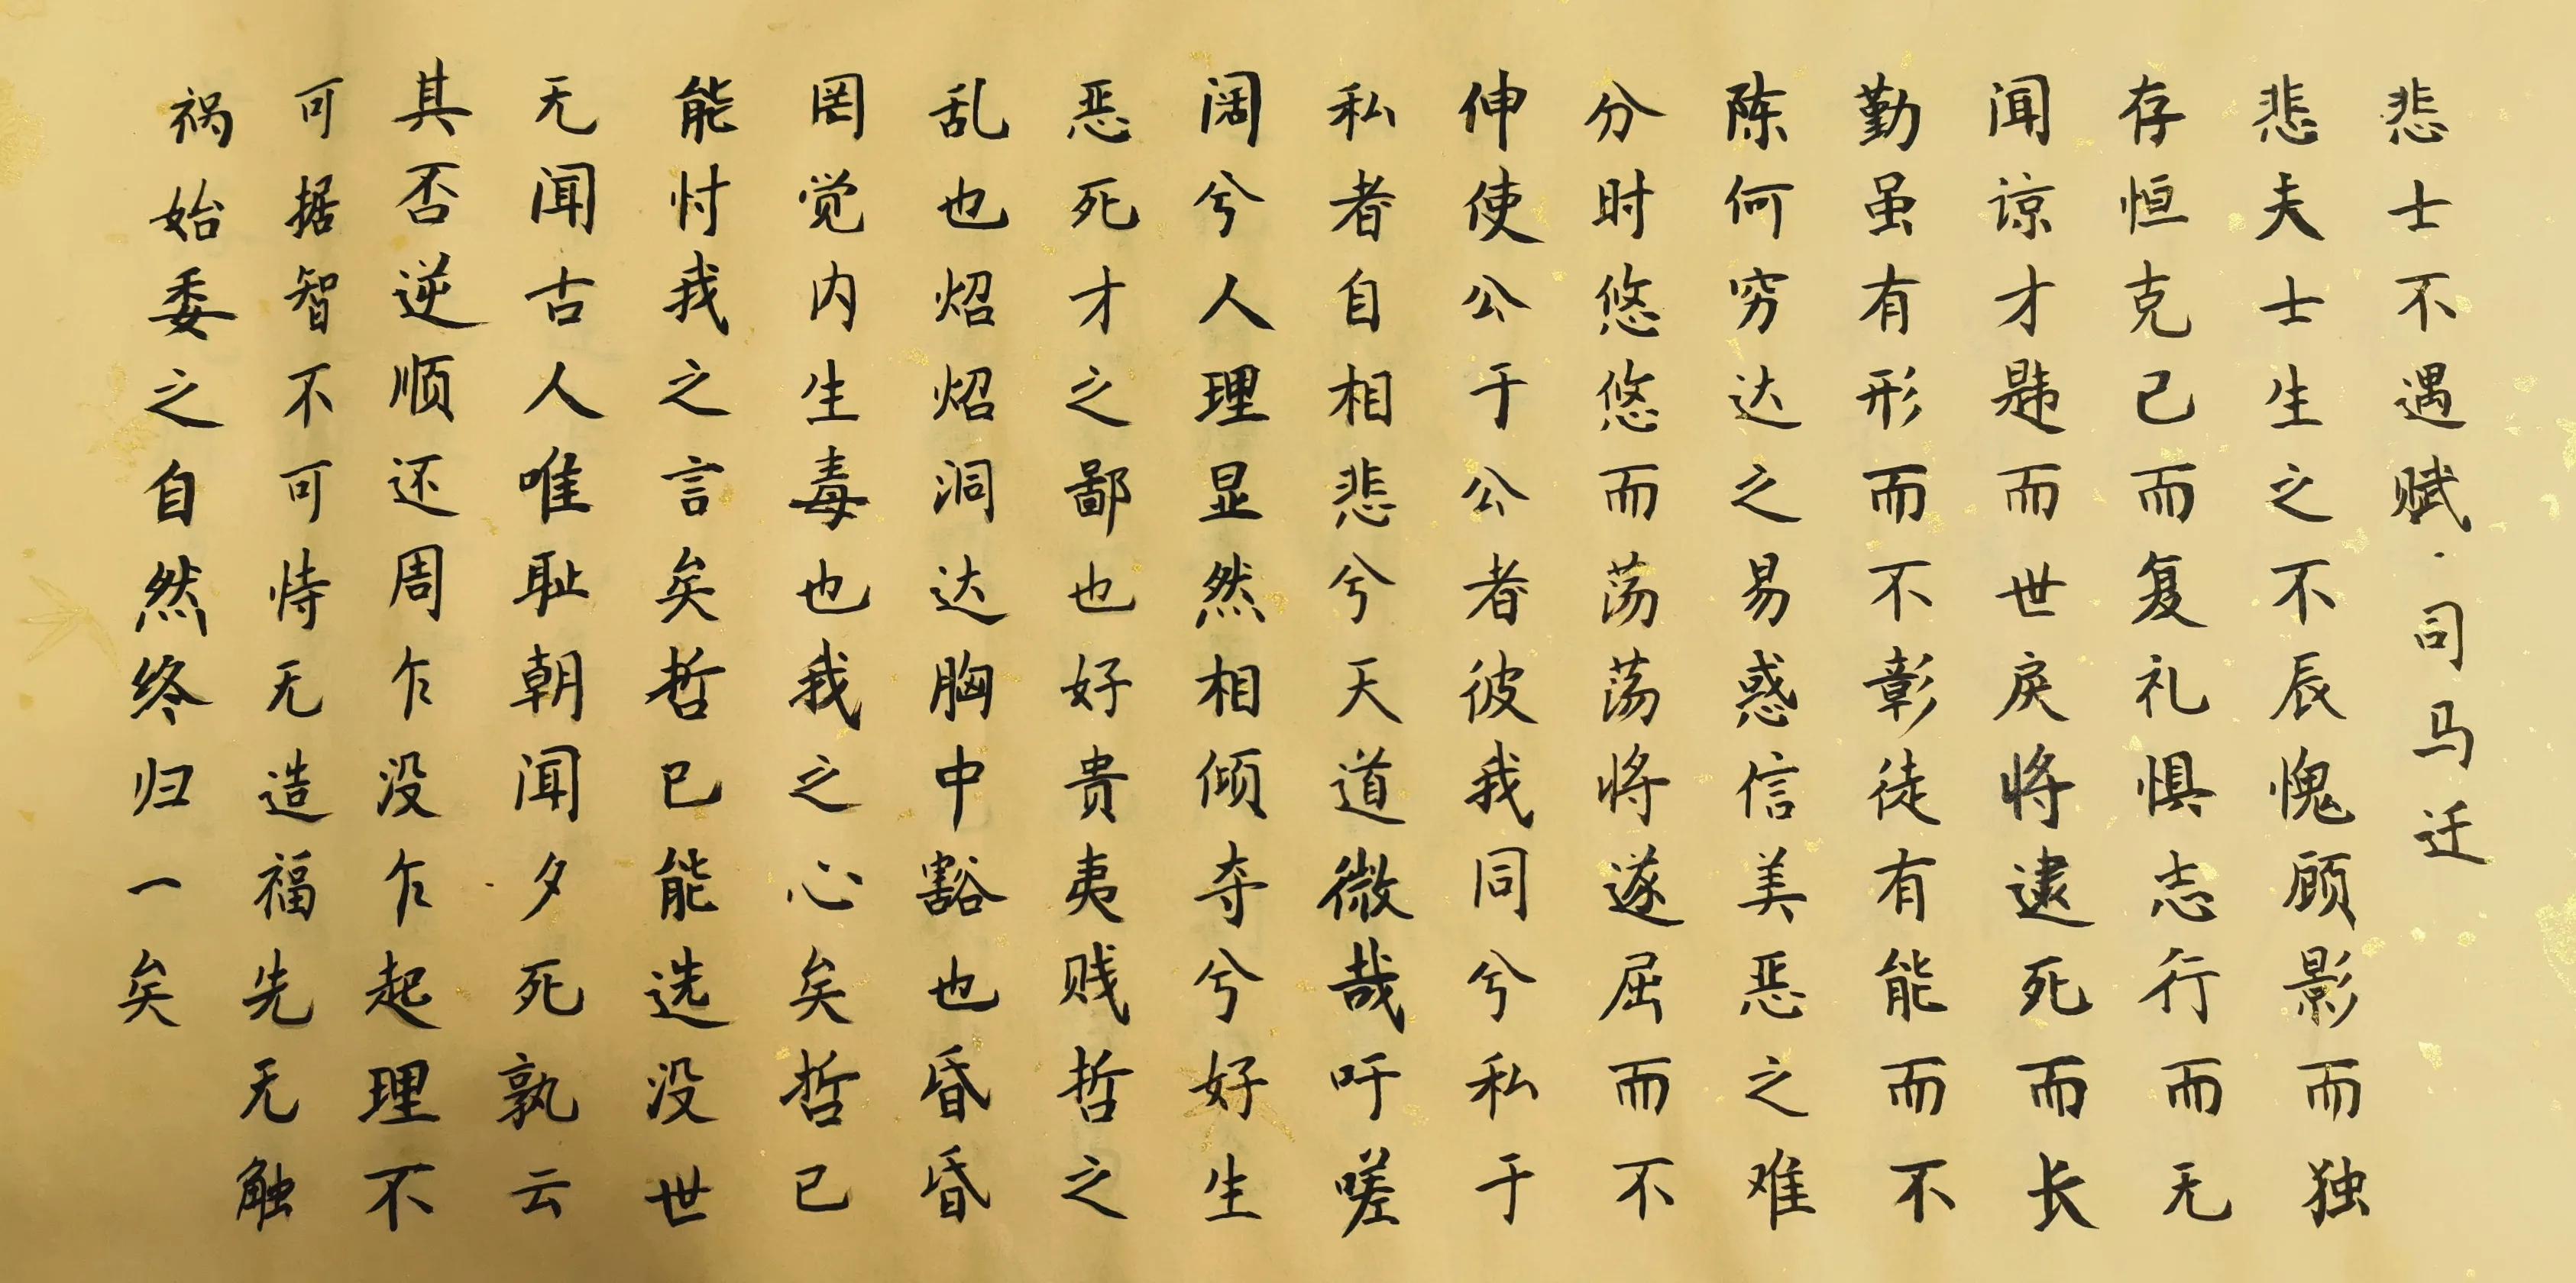 悲士不遇赋·司马迁
悲夫士生之不辰愧顾影而独
存恒克己而复礼惧志行而无
闻谅才韪而世戾将逮死而长
勤虽有形而不彰徒有能而不
陈何穷达之易惑信美恶之难
分时悠悠而荡荡将遂屈而不
伸使公于公者彼我同兮私于
私者自相悲兮天道微哉吁嗟
阔兮人理显然相倾夺兮好生
恶死才之鄙也好贵夷贱哲之
乱也炤炤洞达胸中豁也昏昏
罔觉内生毒也我之心矣哲已
能忖我之言矣哲已能选没世
无闻古人唯耻朝闻夕死孰云
其否逆顺还周乍没乍起理不
可据智不可恃无造福先无触
祸始委之自然终归一矣